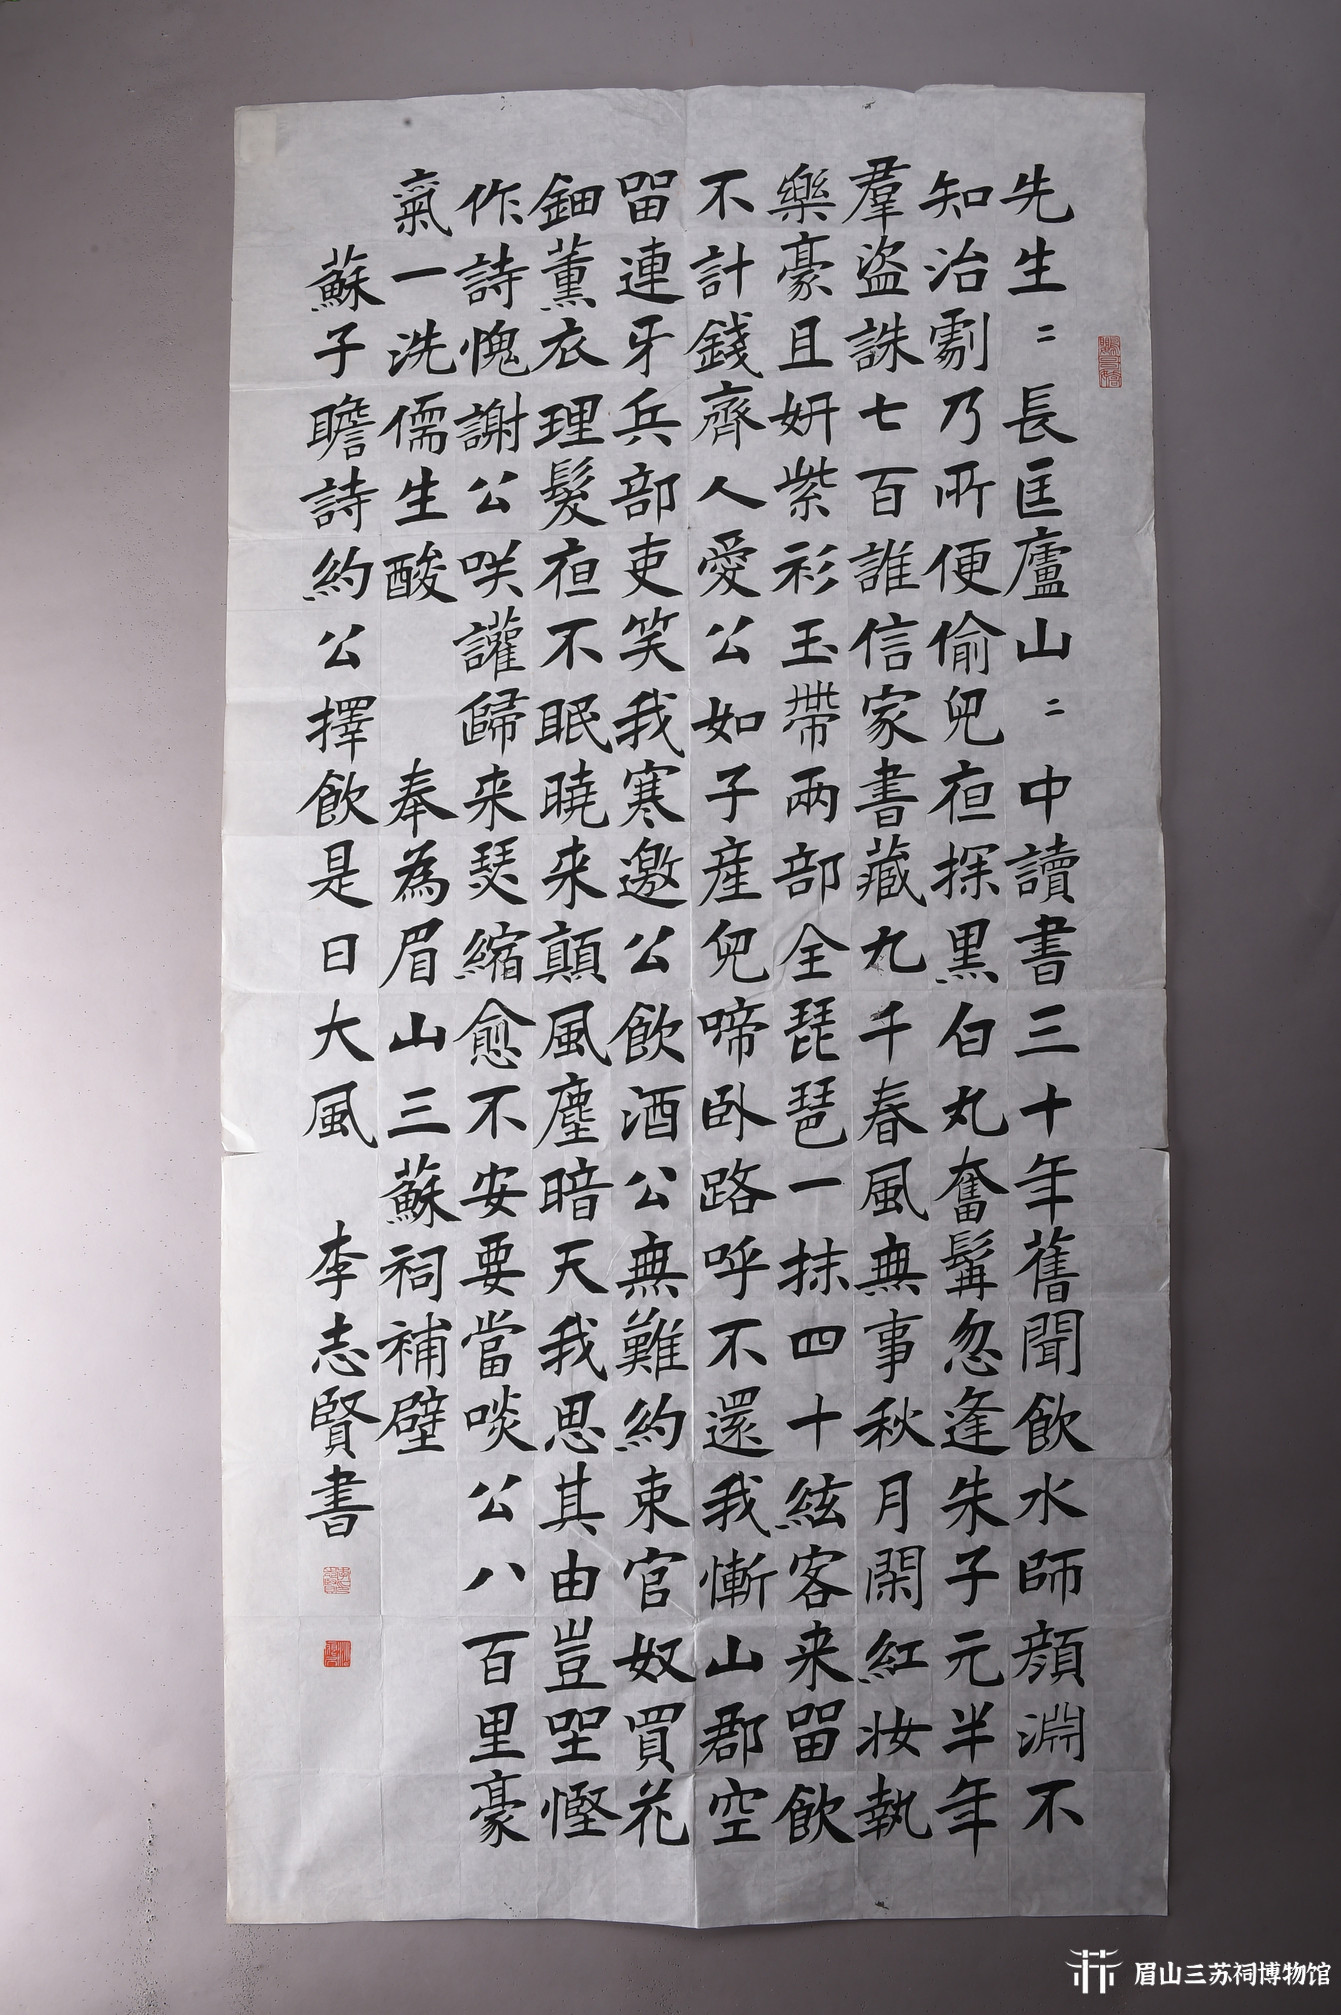 先生〻長匡廬山〻中讀書三十年舊聞飲水師顏淵不
知治劇乃所便偷兒夜探黑白丸奮髯忽逢朱子元半年
羣盜誅七百誰信家書藏九千春風無事秋月閑紅妝執
樂豪且妍紫衫玉帶兩部全琵琶一抹四十絃客来留飲
不計錢齊人愛公如子產兒啼臥路呼不還我慚山郡空
留連牙兵部吏笑我寒邀公飲酒公無難約束官奴買花
鈿薰衣理髮夜不眠曉来顛風塵暗天我思其由豈坐慳
作詩愧謝公咲讙歸来瑟縮愈不安要當啖公八百里豪
氣一洗儒生酸 奉為眉山三蘇祠補壁
蘇子瞻詩約公擇飲是日大風 李志賢書
眉山三苏祠博物馆